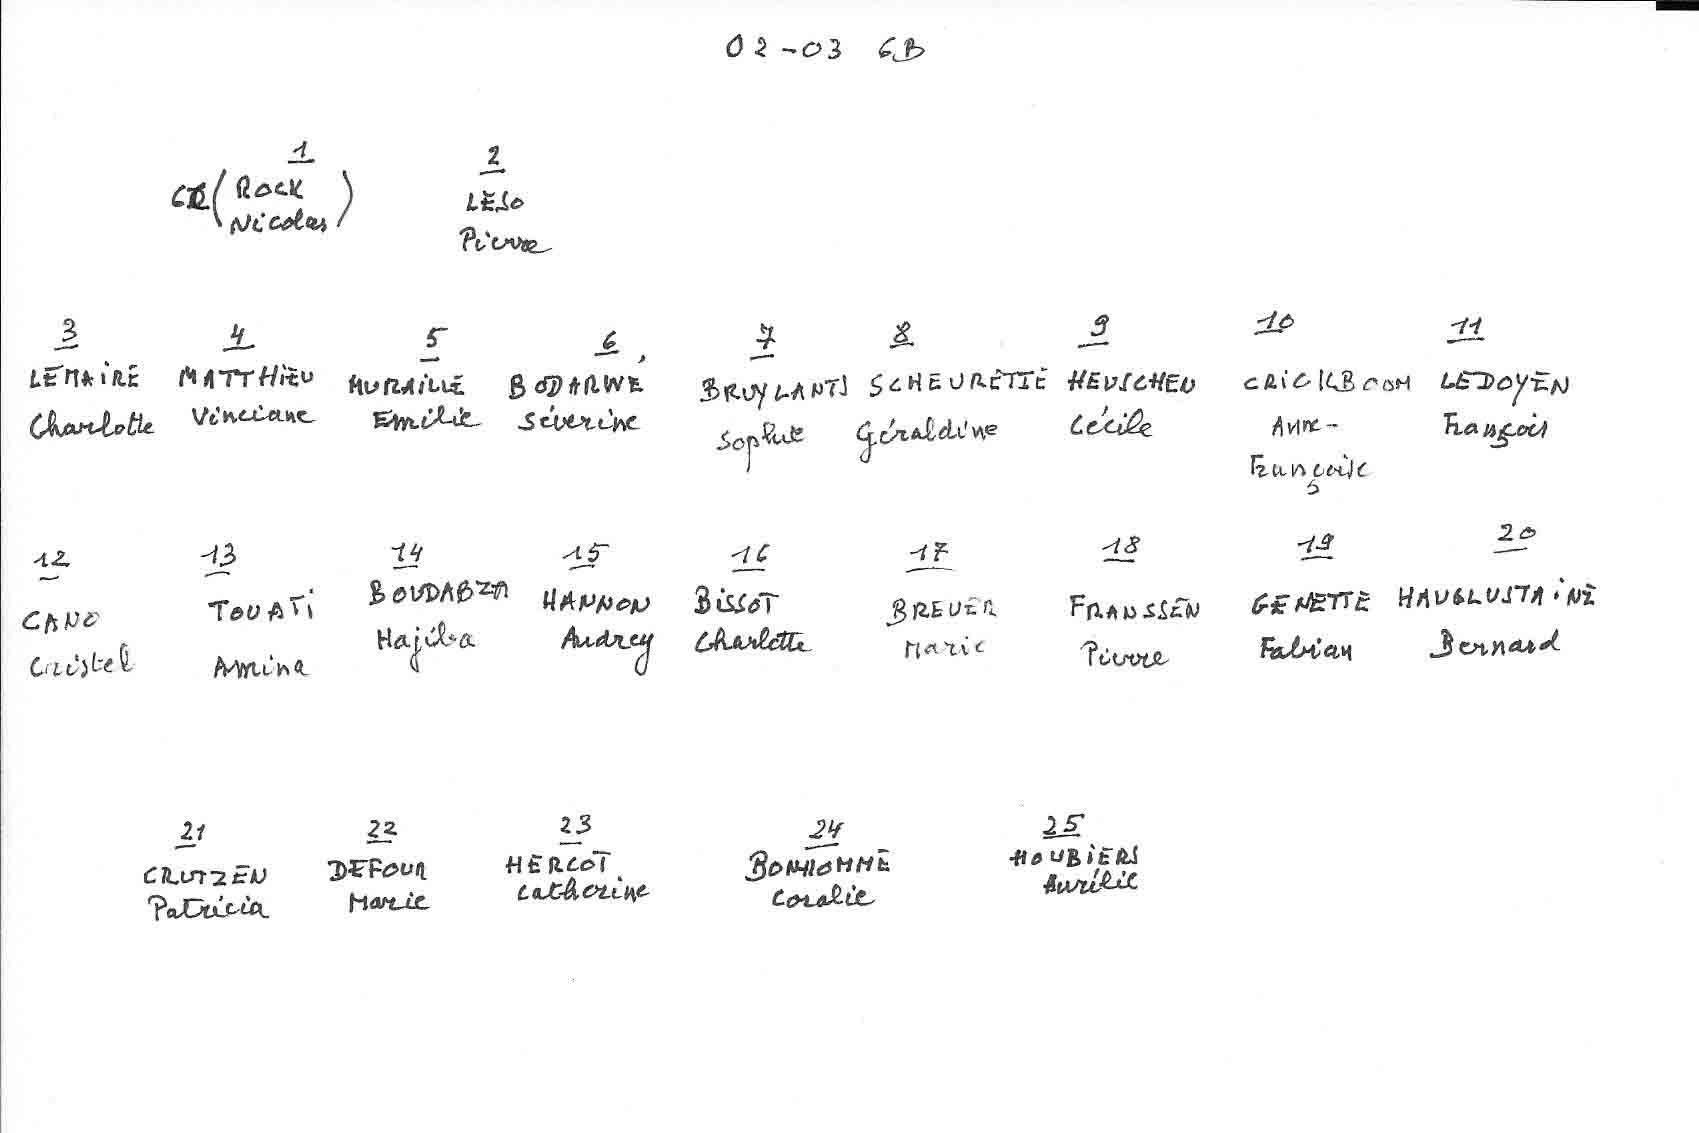 02-03 6B
1 2
ROCK LESO
Nicolas Pierre
3 4 5 6 7 8 9 10 11
LEMAIRE MATTHIEU MURAILLE BODARWÉ BRUYLANTS SCHEURETTE HEUSCHEN CRICKBOOM LEDOYEN
Charlotte Vinciane Emilie Séverine Sophie Géraldine Cécile Anne- François
Françoise
12 13 14 15 16 17 18 19 20
CANO TOUATI BOUDABZA HANNON BISSOT BREUER FRANSSEN GENETTE HAUGLUSTAINE
Cristel Amina Hajiba Audrey Charlotte Marie Pierre Fabian Bernard
21 22 23 24 25
CRUTZEN DEFOUR HERCOT BONHOMME HOUBIERS
Patricia Marie Catherine Coralie Aurélie